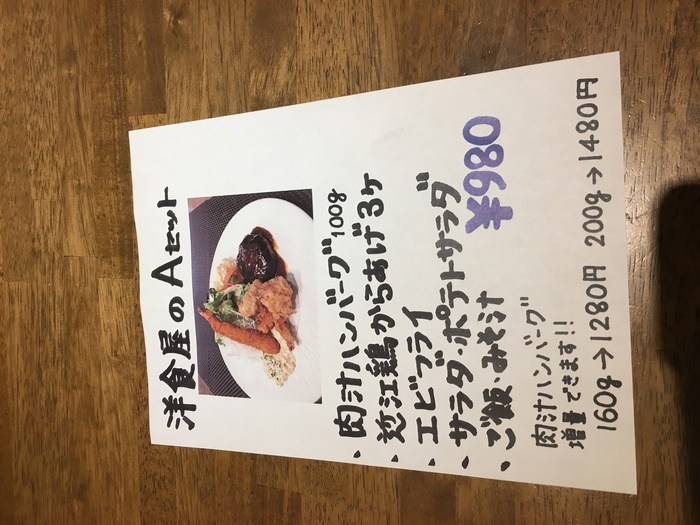 洋食屋のAセット
、肉汁ハンバーグ100g
、近江鶏からあげ3ヶ
、エビフライ
、サラダ・ポテトサラダ
、ご飯・みそ汁
¥980
肉汁ハンバーグ
増量できます!!
160g→1280円 200g→1480円